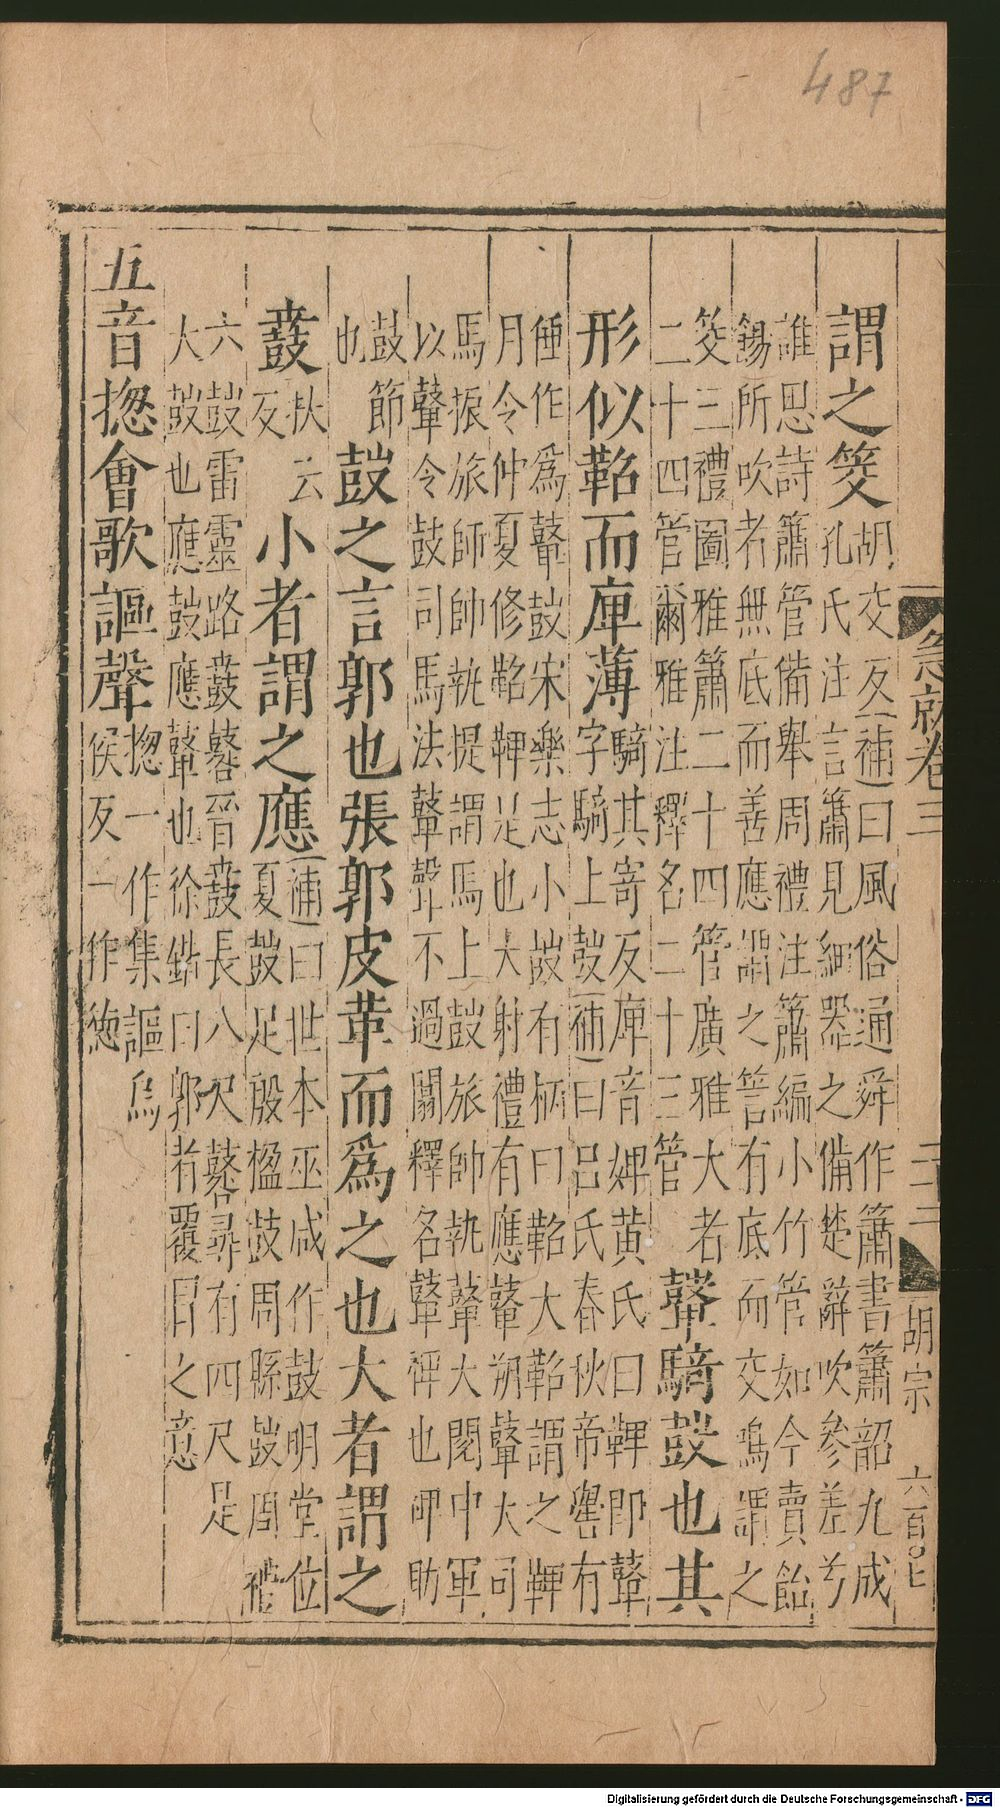 487
謂之筊胡交反(補)曰風俗通舜作簫書簫韶九成
孔氏注言簫見細器之備楚辭吹參差兮
誰思詩簫管備舉周禮注簫編小竹管如今賣飴
錫所吹者無底而善應謂之䇾有底而交鳴謂之
筊三禮圖雅簫二十四管廣雅大者
二十四管爾雅注釋名二十三管
鼙騎鼓也其
形似鞀而庳薄騎其寄反庳音婢黃氏曰鞞卽鼙
字騎上鼓(補)曰呂氏春秋帝嚳有
倕作爲鼙鼓宋樂志小鼓有柄曰鞀大鞀謂之鞞
月令仲夏修鞀鞞是也大射禮有應鼙朔鼙大司
馬振旅師帥執提謂馬上鼓旅帥執鼙大閱中軍
以鼙令鼓司馬法鼙聲不過闒釋名鼙裨也裨助
鼓節
也
鼓之言郭也張郭皮革而爲之也大者謂之
鼖扶云
反
小者謂之應(補)曰世本巫咸作鼓明堂位
夏鼓足殷楹鼓周縣鼓周禮
六鼓雷靈路鼖鼛晉鼖長八尺鼛尋有四尺足
大鼓也應鼓應鼙也徐鍇曰郭者覆冒之意
五音揔會歌謳聲揔一作集謳烏
侯反一作緫
急就卷三
二十二
胡宗
六百〇七
Digitalisierung gefördert durch die Deutsche Forschungsgemeinschaft - DFG